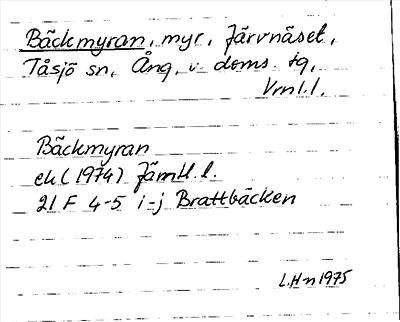 Bäckmyran, myr, Järvnäset,
Tåsjö sn, Ång. v. doms. tg,
Vrnl.l.
Bäckmyran
ek (1974) Jämtl. l.
21 F 4-5 i-j Brattbäcken
L.Hn 1975